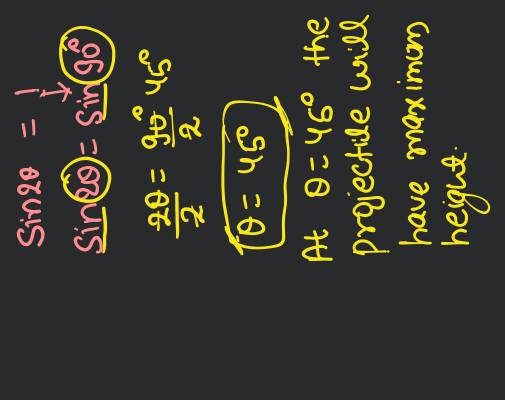 Sin2θ = 1
Sin2θ = Sin90°
2θ/2 = 90°/2 45°
θ = 45°
At θ = 45° the
projectile will
have maximum
height.